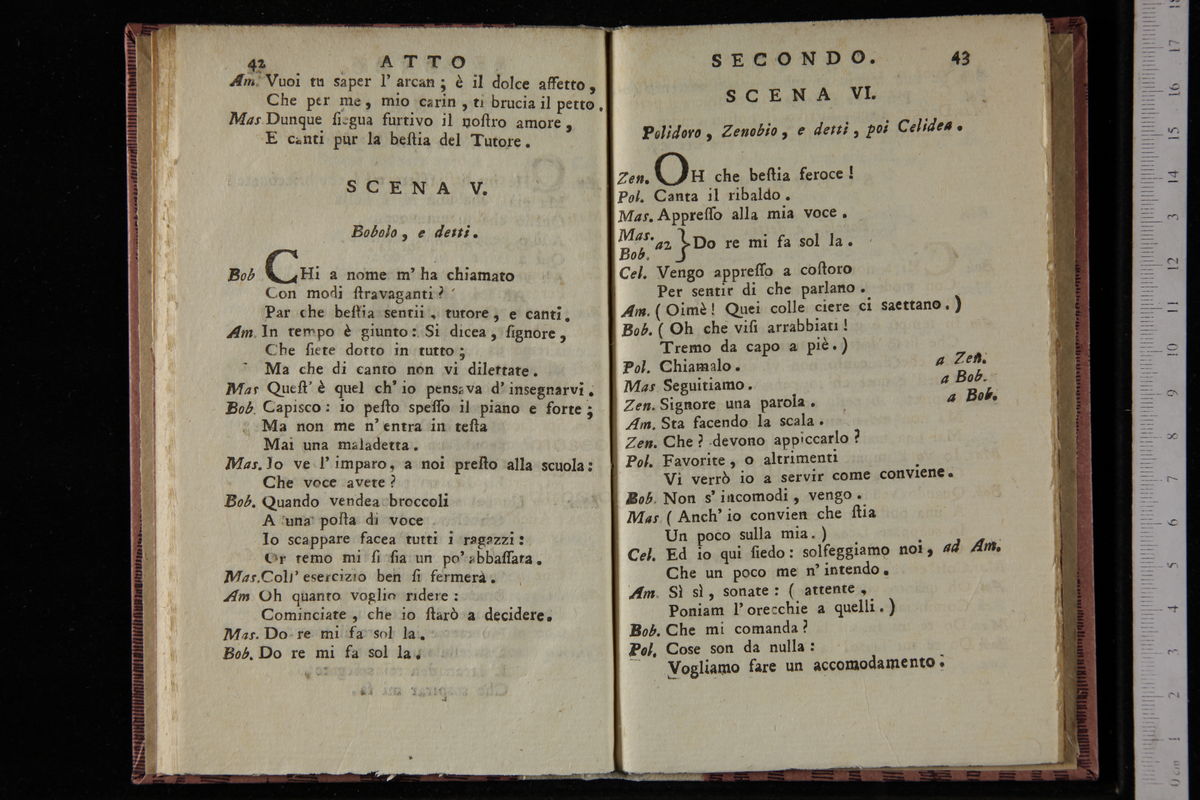 42 ATTO
Am. Vuoi tu saper l' arcan; è il dolce affetto,
Che per me, mio carin, ti brucia il petto.
Mas Dunque siegua furtivo il nostro amore,
E canti pur la bestia del Tutore.
SCENA V.
Bobolo, e detti.
Bob CHi a nome m' ha chiamato
Con modi stravaganti?
Par che bestia sentii, tutore, e canti.
Am. In tempo è giunto: Si dicea, signore,
Che siete dotto in tutto;
Ma che di canto non vi dilettate.
Mas Quest' è quel ch' io pensava d' insegnarvi.
Bob. Capisco: io pesto spesso il piano e forte;
Ma non me n' entra in testa
Mai una maladetta.
Mas. Io ve l' imparo, a noi presto alla scuola:
Che voce avete?
Bob. Quando vendea broccoli
A una posta di voce
Io scappare facea tutti i ragazzi:
Or temo mi si sia un po' abbassata.
Mas. Coll' esercizio ben si fermerà.
Am Oh quanto voglio ridere:
Cominciate, che io starò a decidere.
Mas. Do re mi fa sol la.
Bob. Do re mi fa sol la.
SECONDO. 43
SCENA VI.
Polidoro, Zenobio, e detti, poi Celidea.
Zen. OH che bestia feroce!
Pol. Canta il ribaldo.
Mas. Appresso alla mia voce.
Mas. Bob. a2 } Do re mi fa sol la.
Cel. Vengo appresso a costoro
Per sentir di che parlano.
Am. (Oimè! Quei colle ciere ci saettano.)
Bob. (Oh che visi arrabbiati!
Tremo da capo a piè.)
Pol. Chiamalo. a Zen.
Mas Seguitiamo. a Bob.
Zen. Signore una parola. a Bob.
Am. Sta facendo la scala.
Zen. Che? devono appiccarlo?
Pol. Favorite, o altrimenti
Vi verrò io a servir come conviene.
Bob. Non s' incomodi, vengo.
Mas (Anch' io convien che stia
Un poco sulla mia.)
Cel. Ed io qui siedo: solfeggiamo noi, ad Am.
Che un poco me n' intendo.
Am. Sì sì, sonate: (attente,
Poniam l' orecchie a quelli.)
Bob. Che mi comanda?
Pol. Cose son da nulla:
Vogliamo fare un accomodamento: